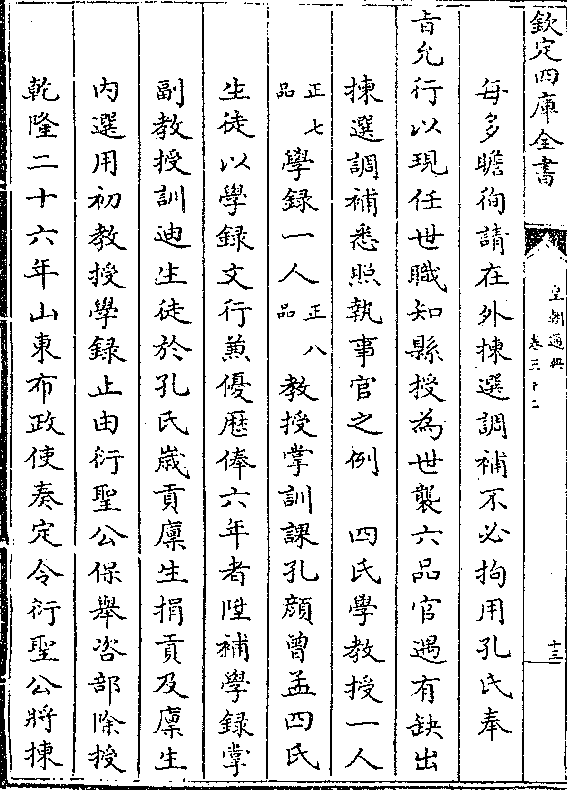 欽定四庫全書
皇朝通典
卷三十二
十三
每多瞻徇請在外揀選調補不必拘用孔氏奉
旨允行以現任世職知縣授為世襲六品官遇有缺出
揀選調補悉照執事官之例　四氏學教授一人
正七品學録一人正八品教授掌訓課孔顔曾孟四氏
生徒以學録文行兼優歴俸六年者陞補學録掌
副教授訓迪生徒於孔氏嵗貢廩生捐貢及廩生
内選用初教授學録止由衍聖公保舉咨部除授
乾隆二十六年山東布政使奏定令衍聖公將揀